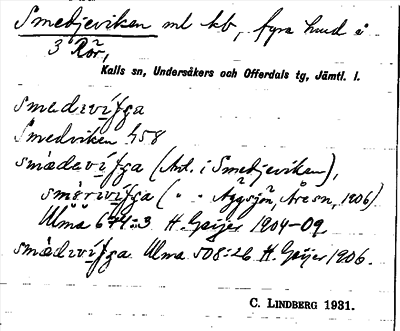 Smedjeviken ml kb, fyra hmd i
3 Rör,
Kalls sn, Undersåkers och Offerdals tg, Jämtl. l.
smedivífga
Smedviken 458
smàdevífga (Ant. i Smedjeviken),
smèrivífga ( " " Äggsjön, Åre sn, 1906).
Ulma 674:3 H. Geijer 1904-09
smàdivífga Ulma 508:26 H. Geijer 1906.
C. LINDBERG 1931.